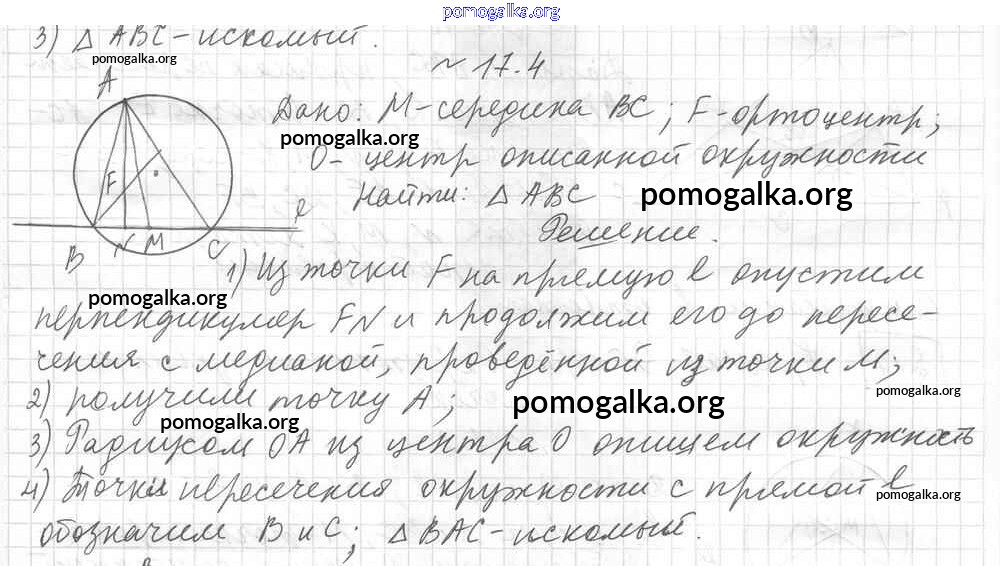 pomogalka.org
3) △ ABC - искомый.
pomogalka.org
~ 17.4
A
Дано: M-середина BC; F-ортоцентр;
pomogalka.org
pomogalka.org
O- центр описанной окружности
Найти: △ ABC
pomogalka.org
F
l
Решение.
B N M C
1) Из точки F на прямую l опустим
pomogalka.org
перпендикуляр FN и продолжим его до пересе-
чения с медианой, проведённой из точки M;
pomogalka.org
2) получили точку A;
pomogalka.org
pomogalka.org
3) Радиусом OA из центра O опишем окружность
4) Точки пересечения окружности с прямой l
pomogalka.org
обозначим B и C; △ BAC-искомый.